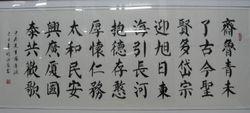 齊魯青未
了古今聖
賢多岱宗
迎旭日東
海引長河
抱德存憨
厚懷仁務
太和民安
興廣廈國
泰共歡歌